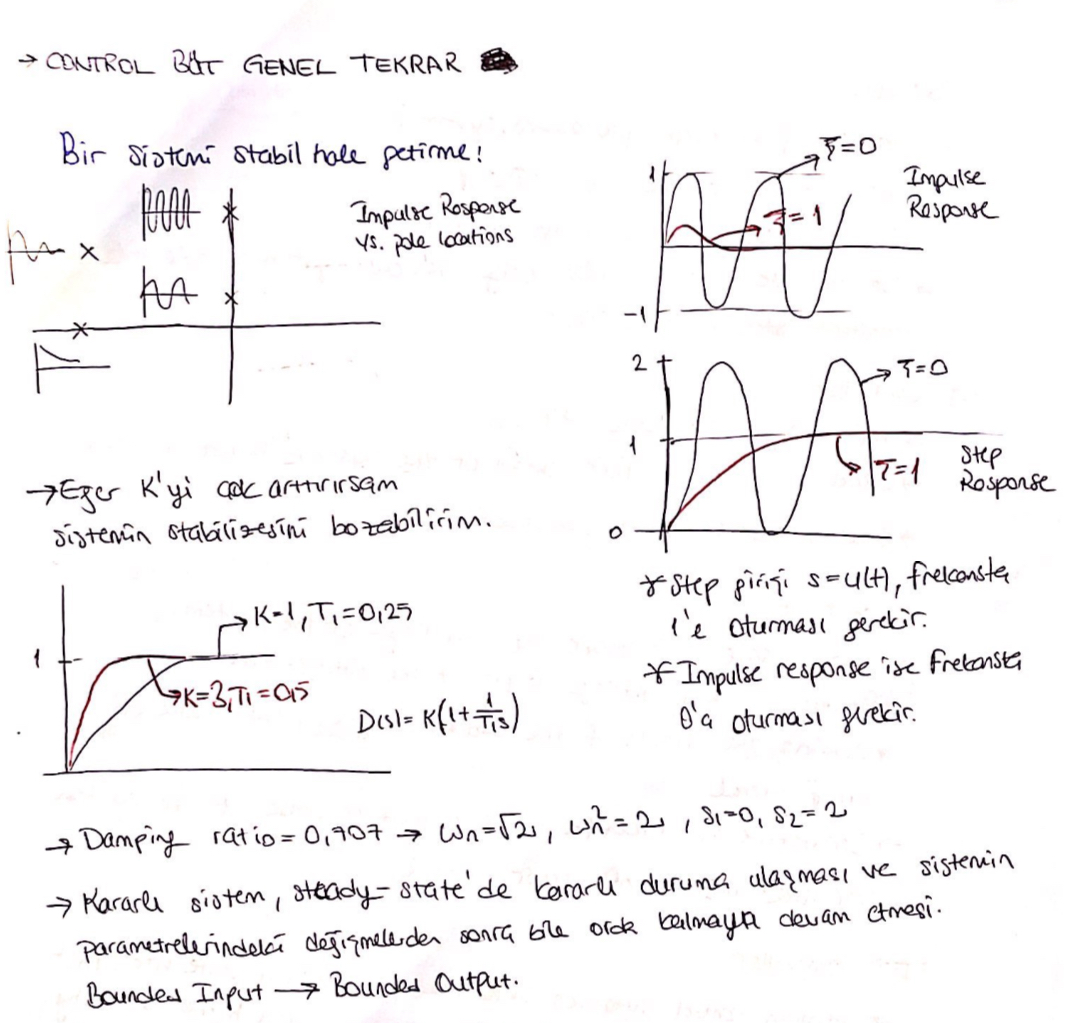 → CONTROL BÜT GENEL TEKRAR
Bir sistemi stabil hale getirme!
Impulse Response
vs. pole locations
1
ξ=0
ξ=1
-1
Impulse
Response
2
ξ=0
1
ξ=1
0
Step
Response
→ Eğer K'yi çok arttırırsam
sistemin stabilizesini bozabilirim.
1
K=1, Tı=0,25
K=3, Tı=0,5
D(s)= K(1+1/Tıs)
* Step girişi s=u(t), frekansta
1'e oturması gerekir.
* Impulse response ise frekansta
0'a oturması gerekir.
→ Damping ratio = 0,707 → ωn=√2, ωn²=2, s1=0, s2=2
→ Kararlı sistem, steady-state'de kararlı duruma ulaşması ve sistemin
parametrelerindeki değişmelerden sonra bile orda kalmaya devam etmesi.
Bounded Input → Bounded Output.